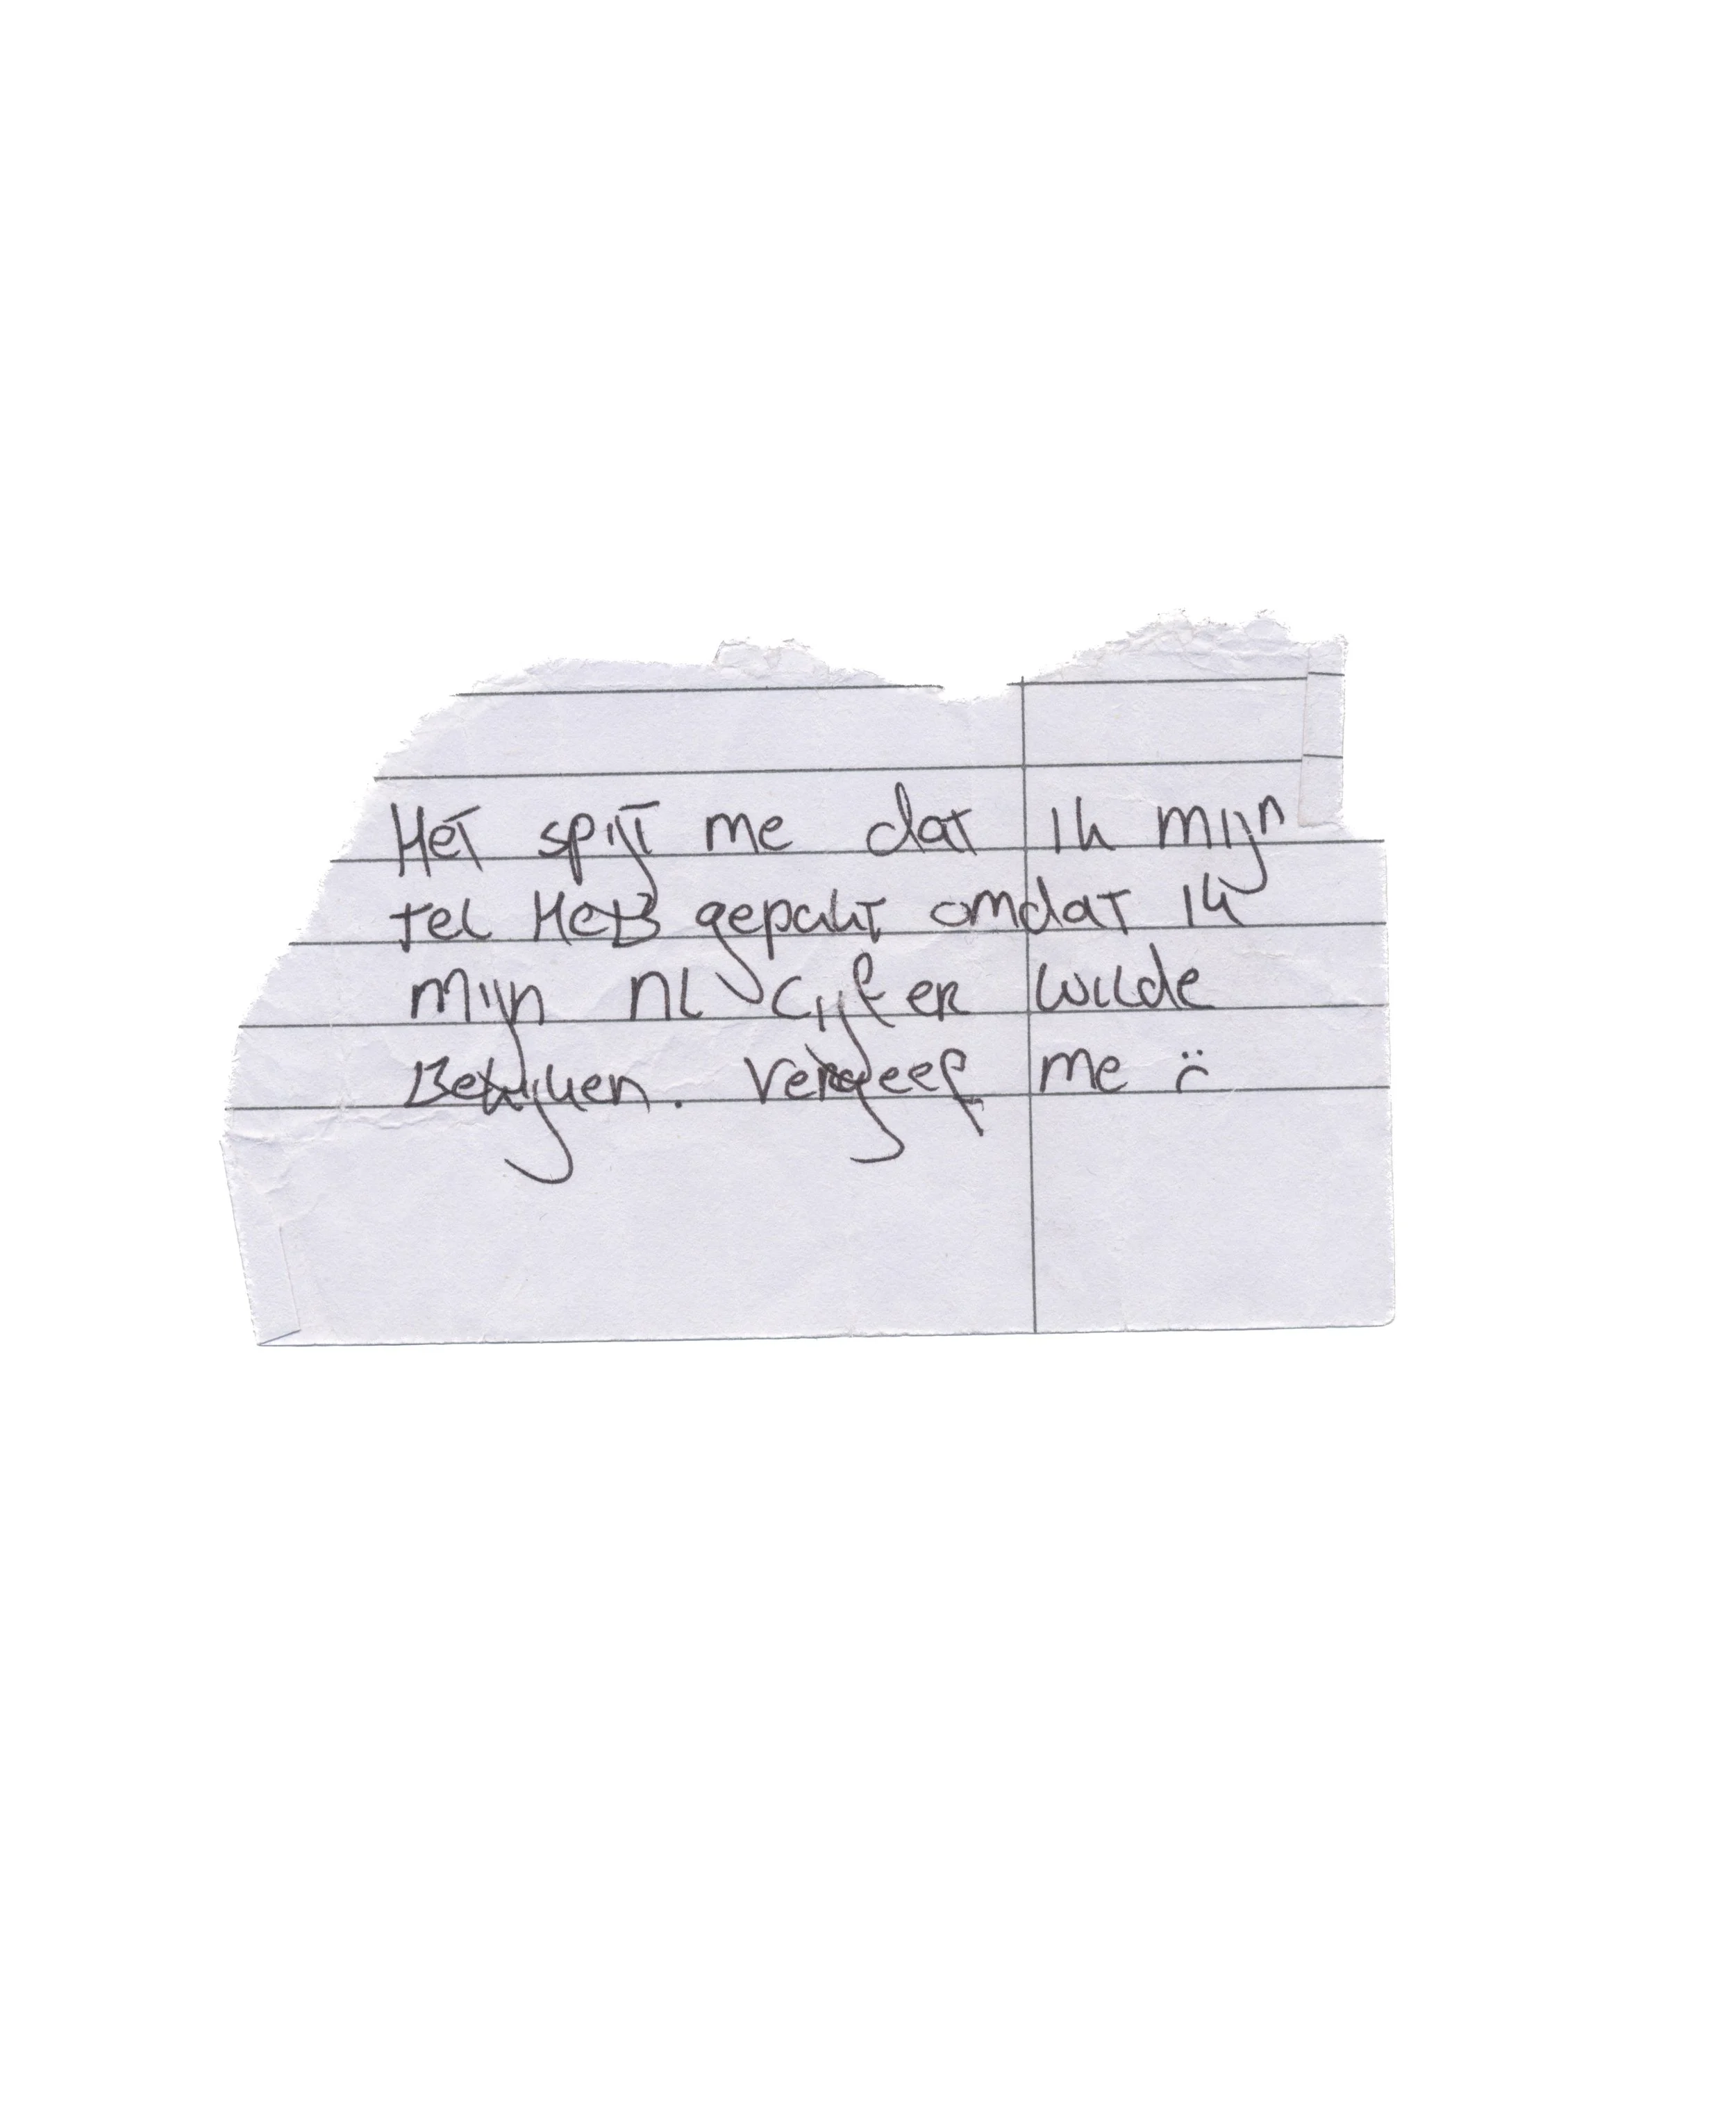 Het spijt me dat ik mijn
tel HeB gepakt omdat ik
mijn nl cijfer wilde
Bekijken. Vergeef me :(